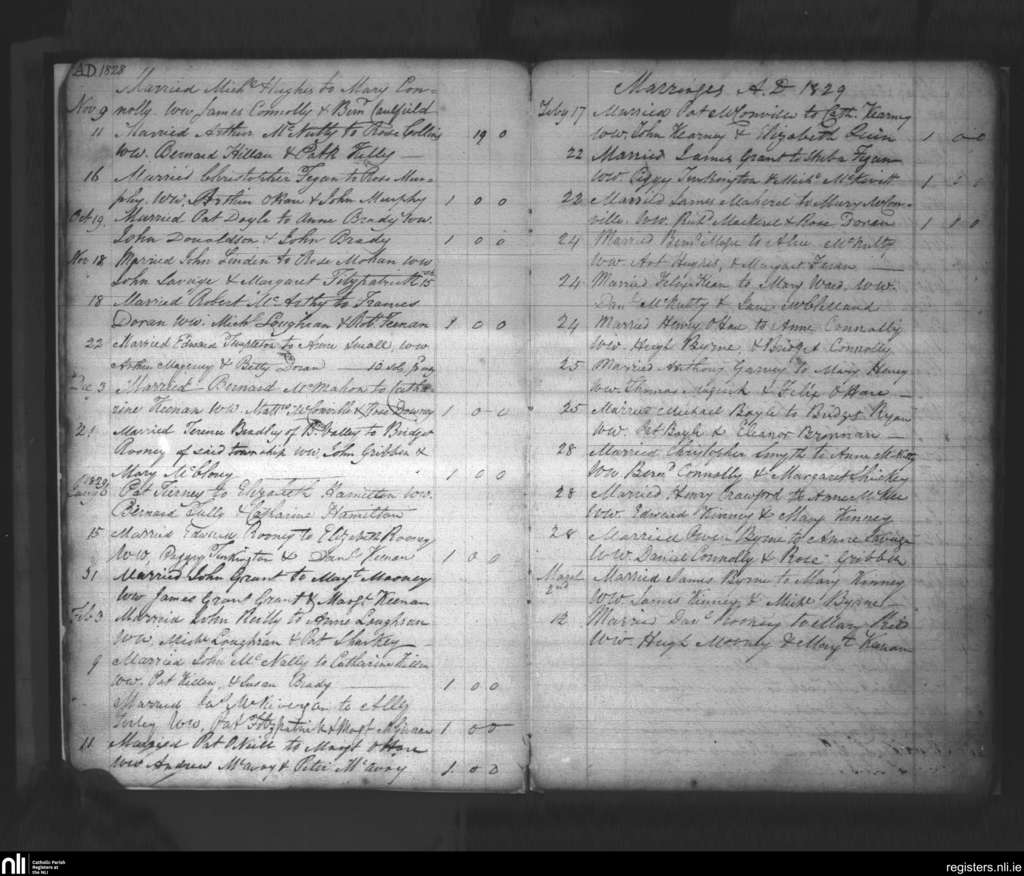 AD 1828
Married Michl Hughes to Mary Con-
Nov 9 nolly. WW James Connolly & Bernd Caulfield
11 Married Arthur McNulty to Rose Collins 19 0
WW. Bernard Hillan & Patk Kelly —
16 Married Christopher Fegan to Rose Mur-
phy. WW. Arthur O'Hare & John Murphy 1 0 0
Oct 19 Married Pat Doyle to Anne Brady WW.
John Donaldson & John Brady 1 0 0
Nov 18 Married John Linden to Rose Mohan WW
John Savage & Margaret Fitzpatrick 15
18 Married Robert McArthy to Frances
Doran WW. Michl Loughran & Robt Keenan 1 0 0
22 Married Edward Templeton to Anne Small WW
Arthur Magenny & Betty Doran — 10
Dec 3 Married Bernard McMahon to Cathe-
rine Keenan WW. Mattw McConville & Rose Downey 1 0 0
21 Married Terence Bradley of Valley to Bridget
Rooney of said township WW. John Gribben &
Mary McCloney 1 0 0
1829
Jany 6 Pat Turney to Elizabeth Hamilton WW.
Bernard Lully & Catharine Hamilton
15 Married Edward Rooney to Elizabeth Rooney
WW, Peggy Tenkington & Danl Keenan 1 0 0
31 Married John Grant to Margt Mooney
WW James Grant Grant & Margt Keenan
Feb 3 Married John Reilly to Anne Loughran
WW. Michl Loughran & Pat Sharkey —
9 Married John McNally to Catharine Killen
WW. Pat Killen, & Susan Brady — 1 0 0
Married Jas McKivergan to Ally
Turley WW, Pat Fitzpatrick & Margt 1 0 0
11 Married Pat O'Neill to Margt O'Hare
WW Andrew McAvoy & Peter McAvoy 1 0 0
Marriages A.D 1829
Feby 17 Married Pat McConville to Cath. Kearney
WW. John Kearney & Elizabeth Guin 1 0 0
22 Married James Grant to Fegan
WW. Peggy Tenkington & Michl McKevitt 1 0 0
22 Married James Mackerel to Mary McCon-
ville. WW. Richd Mackerel & Rose Doran 1 1 0
24 Married Bernd to Alice McNulty
WW. Art Hughes, & Margaret Fegan —
24 Married Felix Kean to Mary Ward WW.
Danl McNulty & Jane McClelland
24 Married Henry O'Hare to Anne Connolly
WW. Hugh Byrne, & Bridget Connolly
25 Married Anthony Garvey to Mary Henry
WW. Thomas & Felix O'Hare —
25 Married Michael Boyle to Bridget Ryan
WW. Pat Boyle & Eleanor Brennan —
28 Married Christopher Smyth to Anne McNulty
WW Bernd Connolly & Margaret Sharkey
28 Married Henry Crawford to Anne McKee
WW. Edward Kinney & Mary Kinney
28 Married Owen Byrne to Anne Savage
WW. Daniel Connolly & Rose Gribben
March 2nd Married James Byrne to Mary Kinney
WW James Kinney, & Michl Byrne —
12 Married Danl Rooney to Mary
WW. Hugh Mooney & Margt Keenan
nli Catholic Parish
Registers at
the NLI
registers.nli.ie